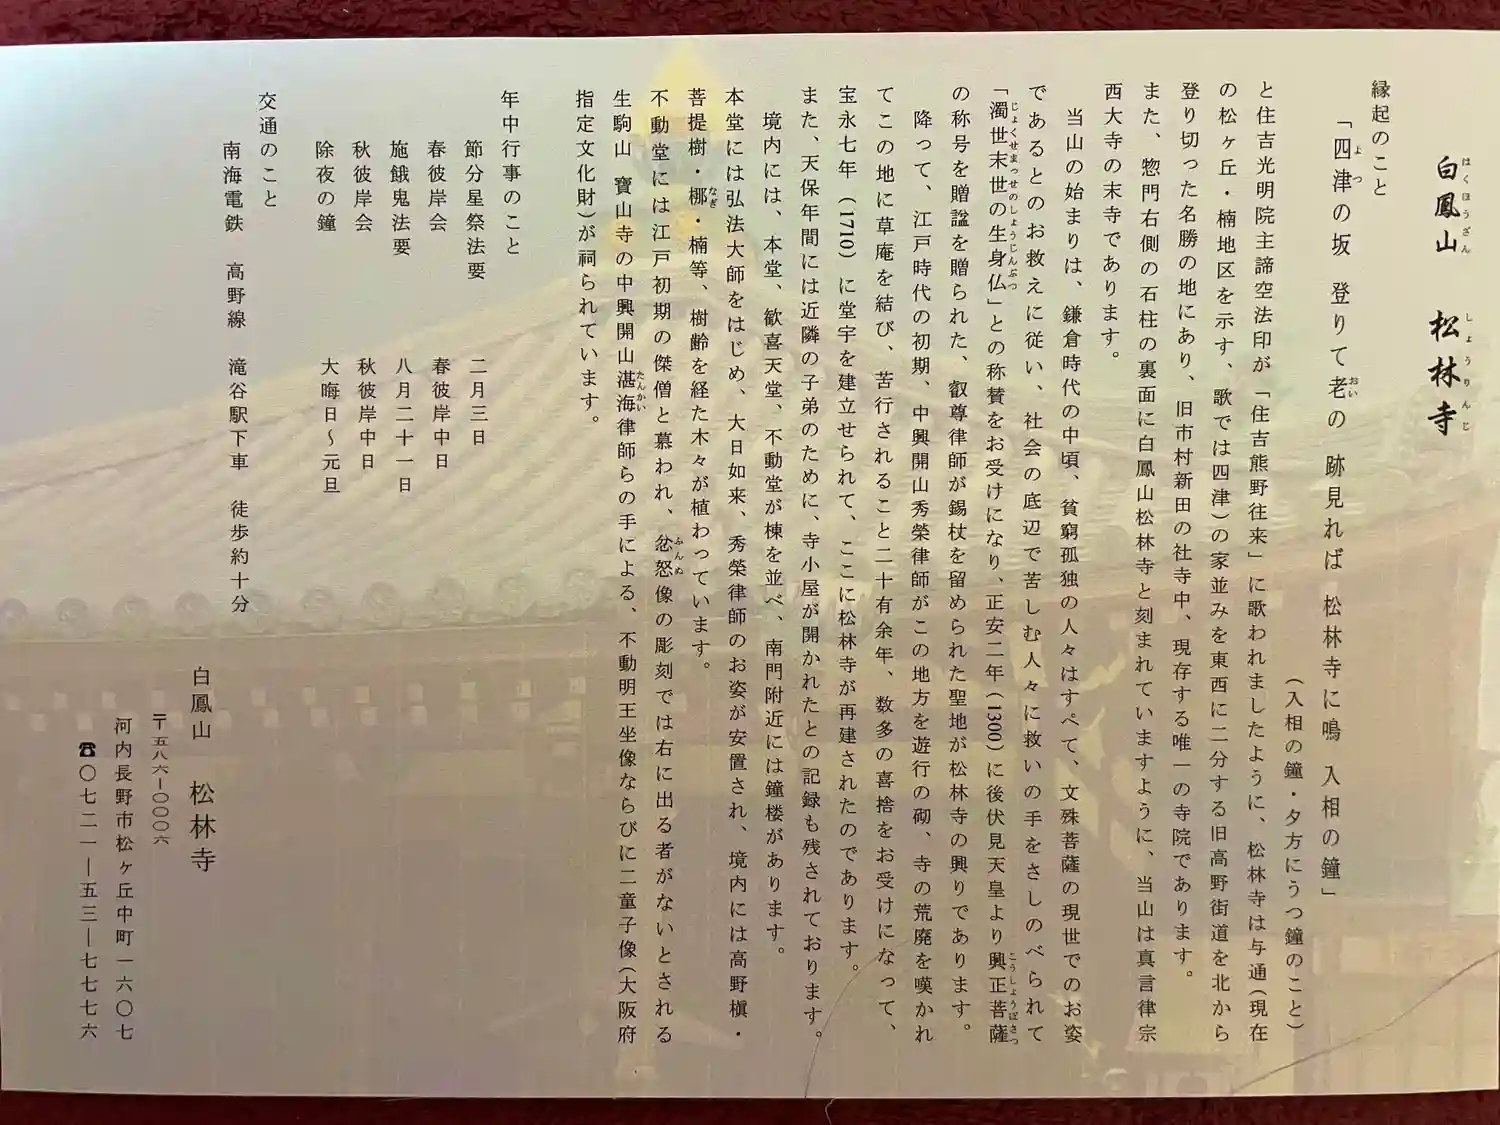 白鳳山　松林寺
縁起のこと
「四津の坂　登りて老の　跡見れば　松林寺に鳴　入相の鐘」
（入相の鐘・夕方にうつ鐘のこと）
と住吉光明院主諦空法印が「住吉熊野往来」に歌われましたように、松林寺は与通(現在
の松ヶ丘・楠地区を示す、歌では四津)の家並みを東西に二分する旧高野街道を北から
登り切った名勝の地にあり、旧市村新田の社寺中、現存する唯一の寺院であります。
また、惣門右側の石柱の裏面に白鳳山松林寺と刻まれていますように、当山は真言律宗
西大寺の末寺であります。
当山の始まりは、鎌倉時代の中頃、貧窮孤独の人々はすべて、文殊菩薩の現世でのお姿
であるとのお救えに従い、社会の底辺で苦しむ人々に救いの手をさしのべられて
「濁世末世の生身仏」との称賛をお受けになり、正安二年(1300)に後伏見天皇より興正菩薩
の称号を贈諡を贈られた、叡尊律師が錫杖を留められた聖地が松林寺の興りであります。
降って、江戸時代の初期、中興開山秀榮律師がこの地方を遊行の砌、寺の荒廃を嘆かれ
てこの地に草庵を結び、苦行されること二十有余年、数多の喜捨をお受けになって、
宝永七年（1710）に堂宇を建立せられて、ここに松林寺が再建されたのであります。
また、天保年間には近隣の子弟のために、寺小屋が開かれたとの記録も残されております。
境内には、本堂、歓喜天堂、不動堂が棟を並べ、南門附近には鐘楼があります。
本堂には弘法大師をはじめ、大日如来、秀榮律師のお姿が安置され、境内には高野槇・
菩提樹・梛・楠等、樹齢を経た木々が植わっています。
不動堂には江戸初期の傑僧と慕われ、忿怒像の彫刻では右に出る者がないとされる
生駒山　寶山寺の中興開山湛海律師らの手による、不動明王坐像ならびに二童子像(大阪府
指定文化財)が祠られています。
年中行事のこと
節分星祭法要　二月三日
春彼岸会　春彼岸中日
施餓鬼法要　八月二十一日
秋彼岸会　秋彼岸中日
除夜の鐘　大晦日～元旦
交通のこと
南海電鉄　高野線　滝谷駅下車　徒歩約十分
白鳳山　松林寺
〒五八六-〇〇〇六
河内長野市松ヶ丘中町一六〇七
☎〇七二一―五三―七七七六